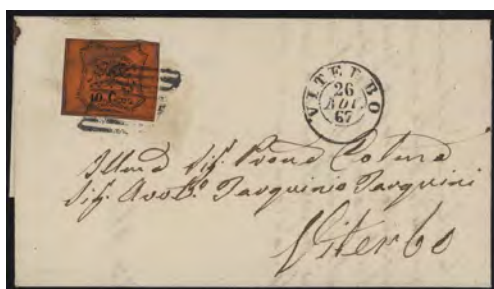 10 Cent.
VITERBO
26
NOV.
67
Illmo Sig. Prone Colmo
Sig. Avv.o Tarquinio Tarquini
Viterbo